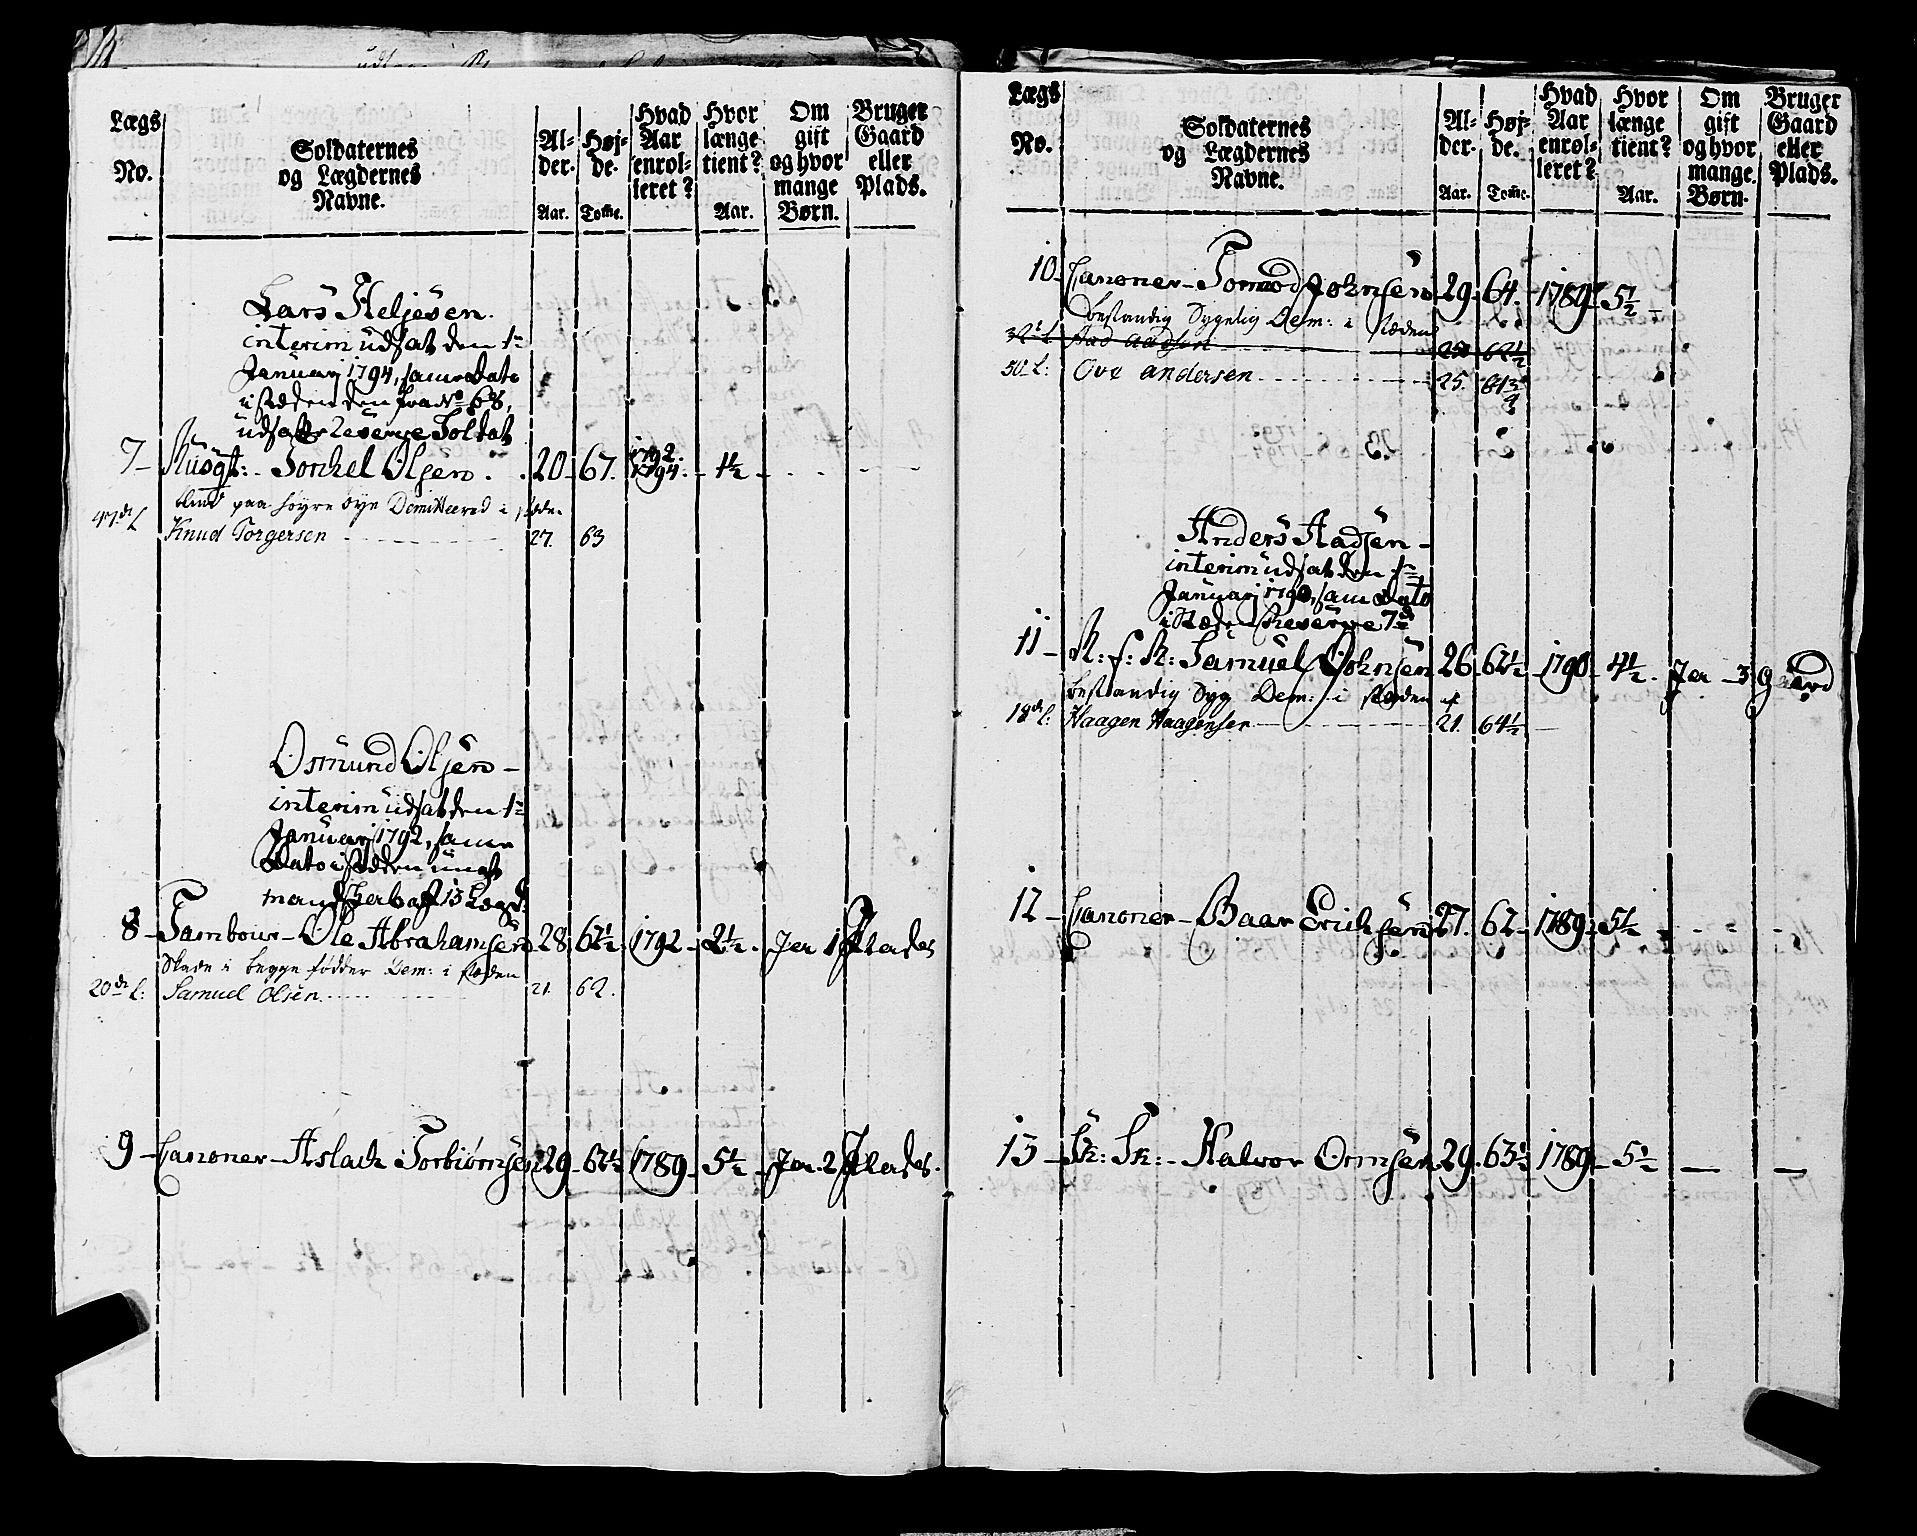 Lægs No.
Soldaternes og Lægdernes Navne.
Al- der. Aar.
Høj- de. Tomme.
Hvad Aar enrol- leret?
Hvor længe tient? Aar.
Om gift og hvor mange Børn.
Bruger Gaard eller Plads.
Lars Heljesen.
interim udsat den 1ste
Januarj 1794, samme Dato
i stæden den fra No 68,
udsatte Reserve Soldat
7 - Musqt: - Tonkel Olsen. . 20 - 67. 1792. 1794. - 1½ -
blind paa høyre øye Demitteered i stæden
47de L Knud Torgersen 27. 63
Osmund Olsen -
interim udsat den 1ste
Januarj 1792, samme
Dato i stæden ungt
mandskab af 15 Lægd:
8 - Tambour - Ole Abrahamsen 28. 62½. 1792 - 2½. Jer 1 Plades
Skade i begge fødder Dem: i stæden
20de L: Samuel Olsen 21. 62.
9 - Canoner - Aslach Torbiørnsen 29 - 62½ 1789 - 5½ - Jer. 2 Plades.
Lægs No.
Soldaternes og Lægdernes Navne.
Al- der. Aar.
Høj- de. Tomme.
Hvad Aar enrol- leret?
Hvor længe tient? Aar.
Om gift og hvor mange Børn.
Bruger Gaard eller Plads.
10 - Canoner - Tomod Johnsen 29 - 64. - 1789 - 5½
bestandig Sygelig Dem: i stæden
Aad Aadsen 62½
50 L: Ove Andersen 25. 61¾
Anders Aadsen -
interim udsat den 1ste
Januarj 1790, samme Dato
i Stæden Reserve 7de
11 - R: f: R: Samuel Johnsen 26 - 62½ - 1790 - 4½. Jer - 3. Gaard
bestandig Syg Dem: i stæden af
18de L: Haagen Haagensen 21. 64½
12 - Canoner - Baar Erichsen 27. 62 - 1789 - 5½
13 - Sk: Sk: - Halvor Ormsen 29. 63½ 1789 - 5½ - -